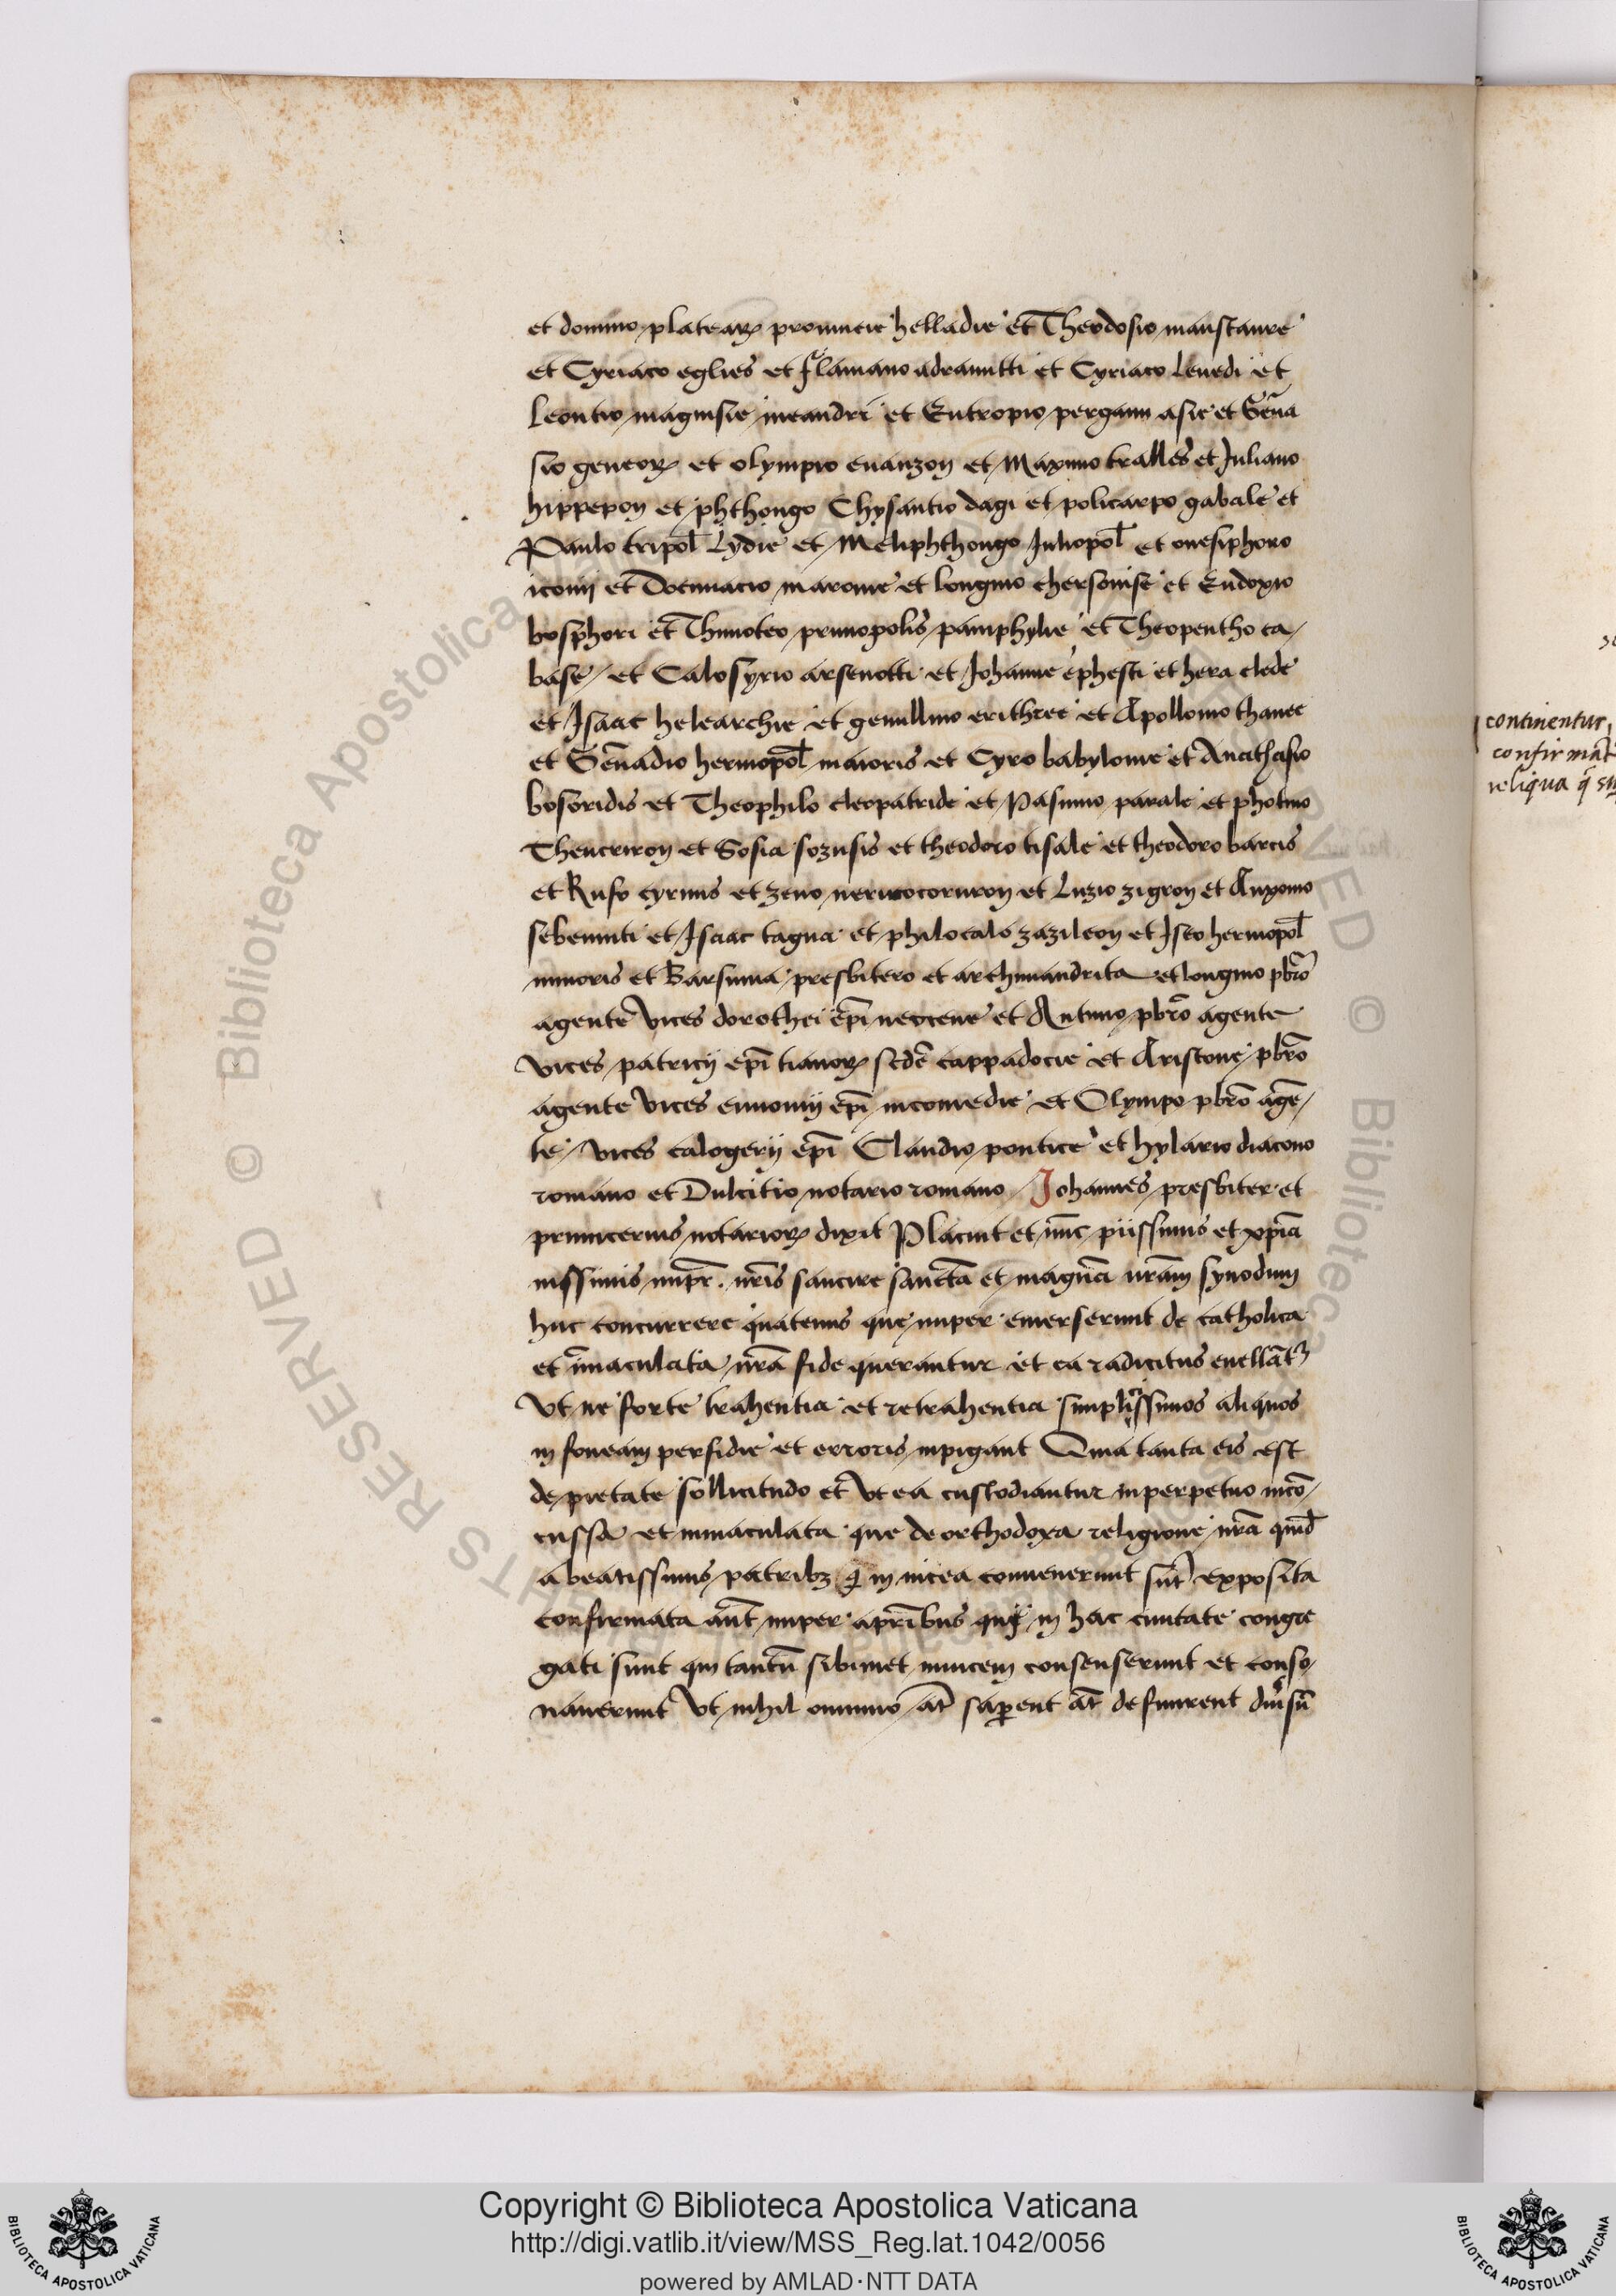 et domno plateaꝝ prouincie helladie et Theodosio manstaure
et Cyriaco eglies et flamano adramitti et Cyriaco leuedi et
leontio magnisie meandri et Eutropio pergami asie et Genna
sio geneoꝝ et olympio euanzon et Maximo tralles et Juliano
hippepon et phthongo Chysantio dagi et policarpo gabale et
Paulo tripoł Lydie et Meliphthongo Juliopoł et onesiphoro
iconij et Docimacio maronie et longino chersonise et Eudoxio
bosphori et Thimoteo primopolis pamphylie et Theopentho ca/
base et Calosyrio arsenotti et Johanne ephesti et hera clede
et Isaac helearchie et gemillino erithree et Apollonio thanee
et Gēnadio hermopoł maioris et Cyro babylonie et Anathasio
bosoridis et Theophilo cleopatride et Pasmio parale et photino
Theucriron et Sosia sozusis et theodoro tisale et theodoro barcis
et Rufo cyrinis et zeno nericocoruron et Luzio zigron et Auxonio
sebenniti et Isaac tagua et philocalo zazileon et Iseo hermopoł
minoris et Barsuma presbitero et archimandrita et longino pbr̄o
agente vices dorothei epī neocene et Antimo pbr̄o agente
vices patricij epī tianoꝝ secd̄e cappadocie et Aristone pbr̄o
agente vices eunomij epī nicomedie et Olympo pbr̄o agē/
te vices calogerij epī Claudio pontice et hylario diacono
romano et Dulcitio notario romano Johannes presbiter et
primicerius notarioꝝ dixit Placuit et nūc piissimis et xpīa
nissimis impr̄. nr̄is sancire sanctā et magnā nr̄am synodum
huc concurrere quatenus que nuper emerserunt de catholica
et īmaculata nr̄a fide querantur et ea radicitus euellāt᷑
Vt ne forte trahentia et retrahentia simplissimos aliquos
in foueam perfidie et erroris inpigant Quia tanta eis est
de pietate sollicitudo et vt ea custodiantur in perpetuo incō/
cussa et inmaculata que de orthodoxa religione nr̄a quid̄
a beatissimis patribꝫ q̄ in nicea conuenerunt sūt exposita
confirmata aūt nuper a pr̄ibus qui in hac ciuitate congre
gati sunt qui tantū sibimet inuicem consenserunt et conso/
nauerunt Vt nihil omnino at̄ saperent at̄ definirent diuisū
continentur
confirmat
reliqua q̄
Copyright © Biblioteca Apostolica Vaticana
http://digi.vatlib.it/view/MSS_Reg.lat.1042/0056
powered by AMLAD·NTT DATA
BIBLIOTECA APOSTOLICA VATICANA
BIBLIOTECA APOSTOLICA VATICANA